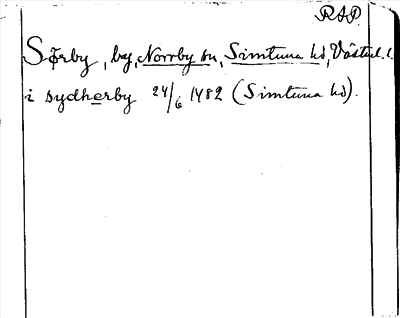 RAP
Sørby, by, Norrby sn, Simtuna hd, Västml. l.
i sydherby 24/6 1482 (Simtuna hd).